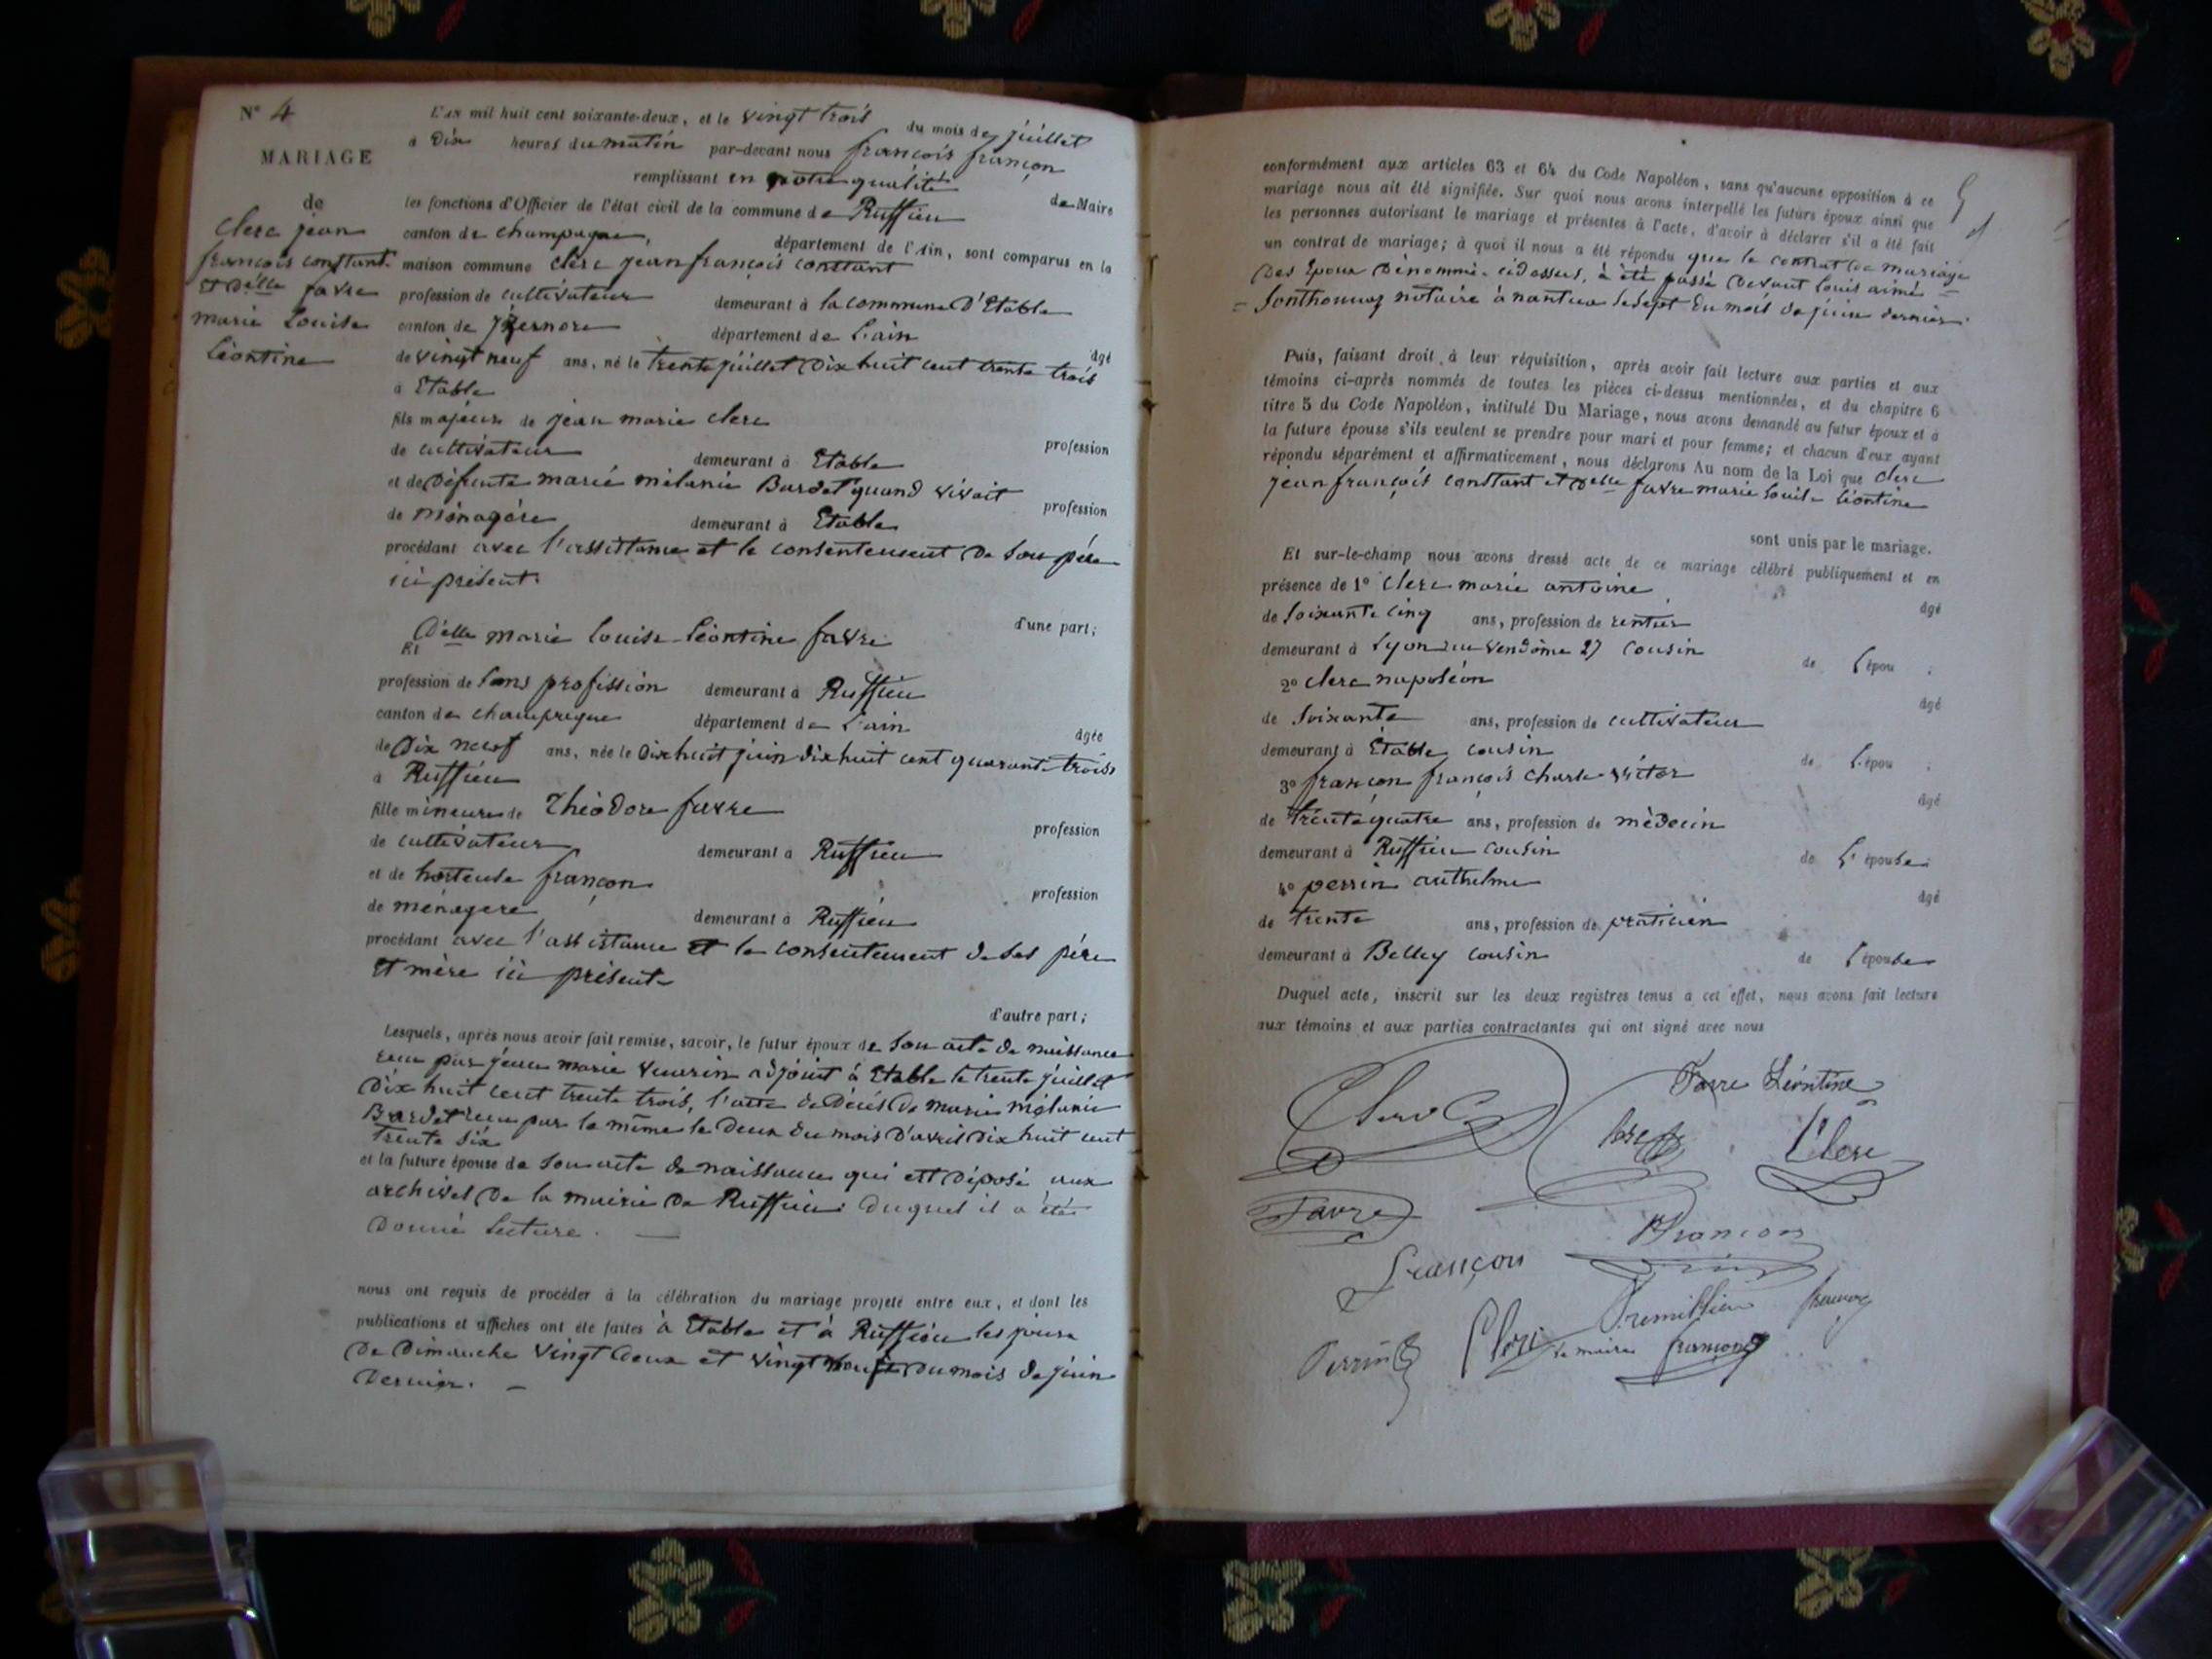 N° 4
MARIAGE
de
Clerc jean
françois constant
et Delle favre
marie Louise
Léontine
L'AN mil huit cent soixante-deux, et le vingt trois du mois de juillet
à Dix heures du matin par-devant nous françois françon
remplissant en notre qualité de Maire
les fonctions d'Officier de l'état civil de la commune de Ruffieu
canton de champagne, département de l'Ain, sont comparus en la
maison commune clerc jean françois constant
profession de cultivateur demeurant à la commune D'Etable
canton de Izernore département de L'ain âgé
de vingt neuf ans, né le trente juillet Dix huit cent trente trois
à Etable
fils majeur de jean marie clerc profession
de cultivateur demeurant à Etable
et de Défunte marie mélanie Bardet quand vivait profession
de ménagère demeurant à Etable
procédant avec l'assistance et le consentement De Son père
ici présent.
d'une part;
Et Delle marie Louise Léontine favre
profession de Sans profission demeurant à Ruffieu
canton de champagne département de L'ain âgée
de Dix neuf ans, née le Dixhuit juin dixhuit cent quarante trois
à Ruffieu
fille mineure de Théodore favre profession
de cultivateur demeurant à Ruffieu
et de hortense françon profession
de ménagère demeurant à Ruffieu
procédant avec l'assistance et le consentement de ses père
et mère ici présent
d'autre part;
Lesquels, après nous avoir fait remise, savoir, le futur époux de Son acte de naissance
reçu par jean marie adjoint à Etable le trente juillet
Dix huit cent trente trois, l'acte de Décès De marie mélanie
Bardet reçu par le même le Deux du mois D'avril Dix huit cent
trente six
et la future épouse de Son acte de naissance qui est Déposé aux
archives De la mairie De Ruffieu. Duquel il a été
Donné Lecture.
nous ont requis de procéder à la célébration du mariage projeté entre eux, et dont les
publications et affiches ont été faites à Etable et à Ruffieu les jours
De Dimanche vingt Deux et vingt neuf Du mois De juin
Dernier.
conformément aux articles 63 et 64 du Code Napoléon, sans qu'aucune opposition à ce
mariage nous ait été signifiée. Sur quoi nous avons interpellé les futurs époux ainsi que
les personnes autorisant le mariage et présentes à l'acte, d'avoir à déclarer s'il a été fait
un contrat de mariage; à quoi il nous a été répondu que le contrat De mariage
Des Epoux Dénommé cidessus, à été passé Devant Louis aimé
Sonthonnaz notaire à nantua le sept Du mois de juin dernier.
Puis, faisant droit à leur réquisition, après avoir fait lecture aux parties et aux
témoins ci-après nommés de toutes les pièces ci-dessus mentionnées, et du chapitre 6
titre 5 du Code Napoléon, intitulé Du Mariage, nous avons demandé au futur époux et à
la future épouse s'ils veulent se prendre pour mari et pour femme; et chacun d'eux ayant
répondu séparément et affirmativement, nous déclarons Au nom de la Loi que clerc
jean françois constant et Delle favre marie Louise Léontine
sont unis par le mariage.
Et sur-le-champ nous avons dressé acte de ce mariage célébré publiquement et en
présence de 1° clerc marie antoine âgé
de Soixante cinq ans, profession de rentier
demeurant à Lyon rue vendôme 27 cousin de L'épou
2° clerc napoléon âgé
de Soixante ans, profession de cultivateur
demeurant à Etable cousin de L'épou
3° françon françois charle victor âgé
de trente quatre ans, profession de médecin
demeurant à Ruffieu cousin de L'épouse
4° perrin anthelme âgé
de trente ans, profession de praticien
demeurant à Belley cousin de L'épouse
Duquel acte, inscrit sur les deux registres tenus à cet effet, nous avons fait lecture
aux témoins et aux parties contractantes qui ont signé avec nous
Clerc
Favre Léontine
Clerc
Favre
françon
françon
Perrin
Clerc
le maire françon